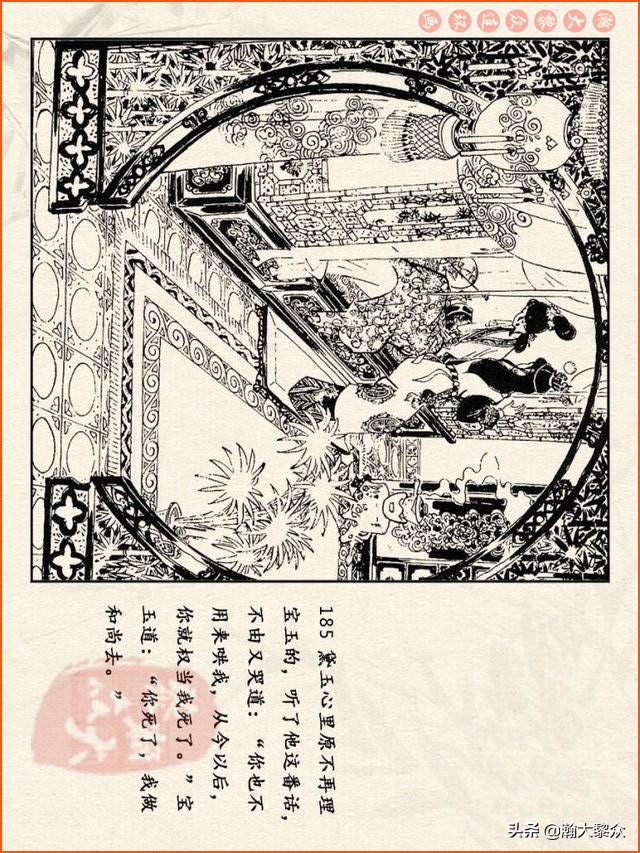 瀚大黎众连环画
185 黛玉心里原不再理
宝玉的，听了他这番话，
不由又哭道：“你也不
用来哄我，从今以后，
你就权当我死了。”宝
玉道：“你死了，我做
和尚去。”
头条 @瀚大黎众